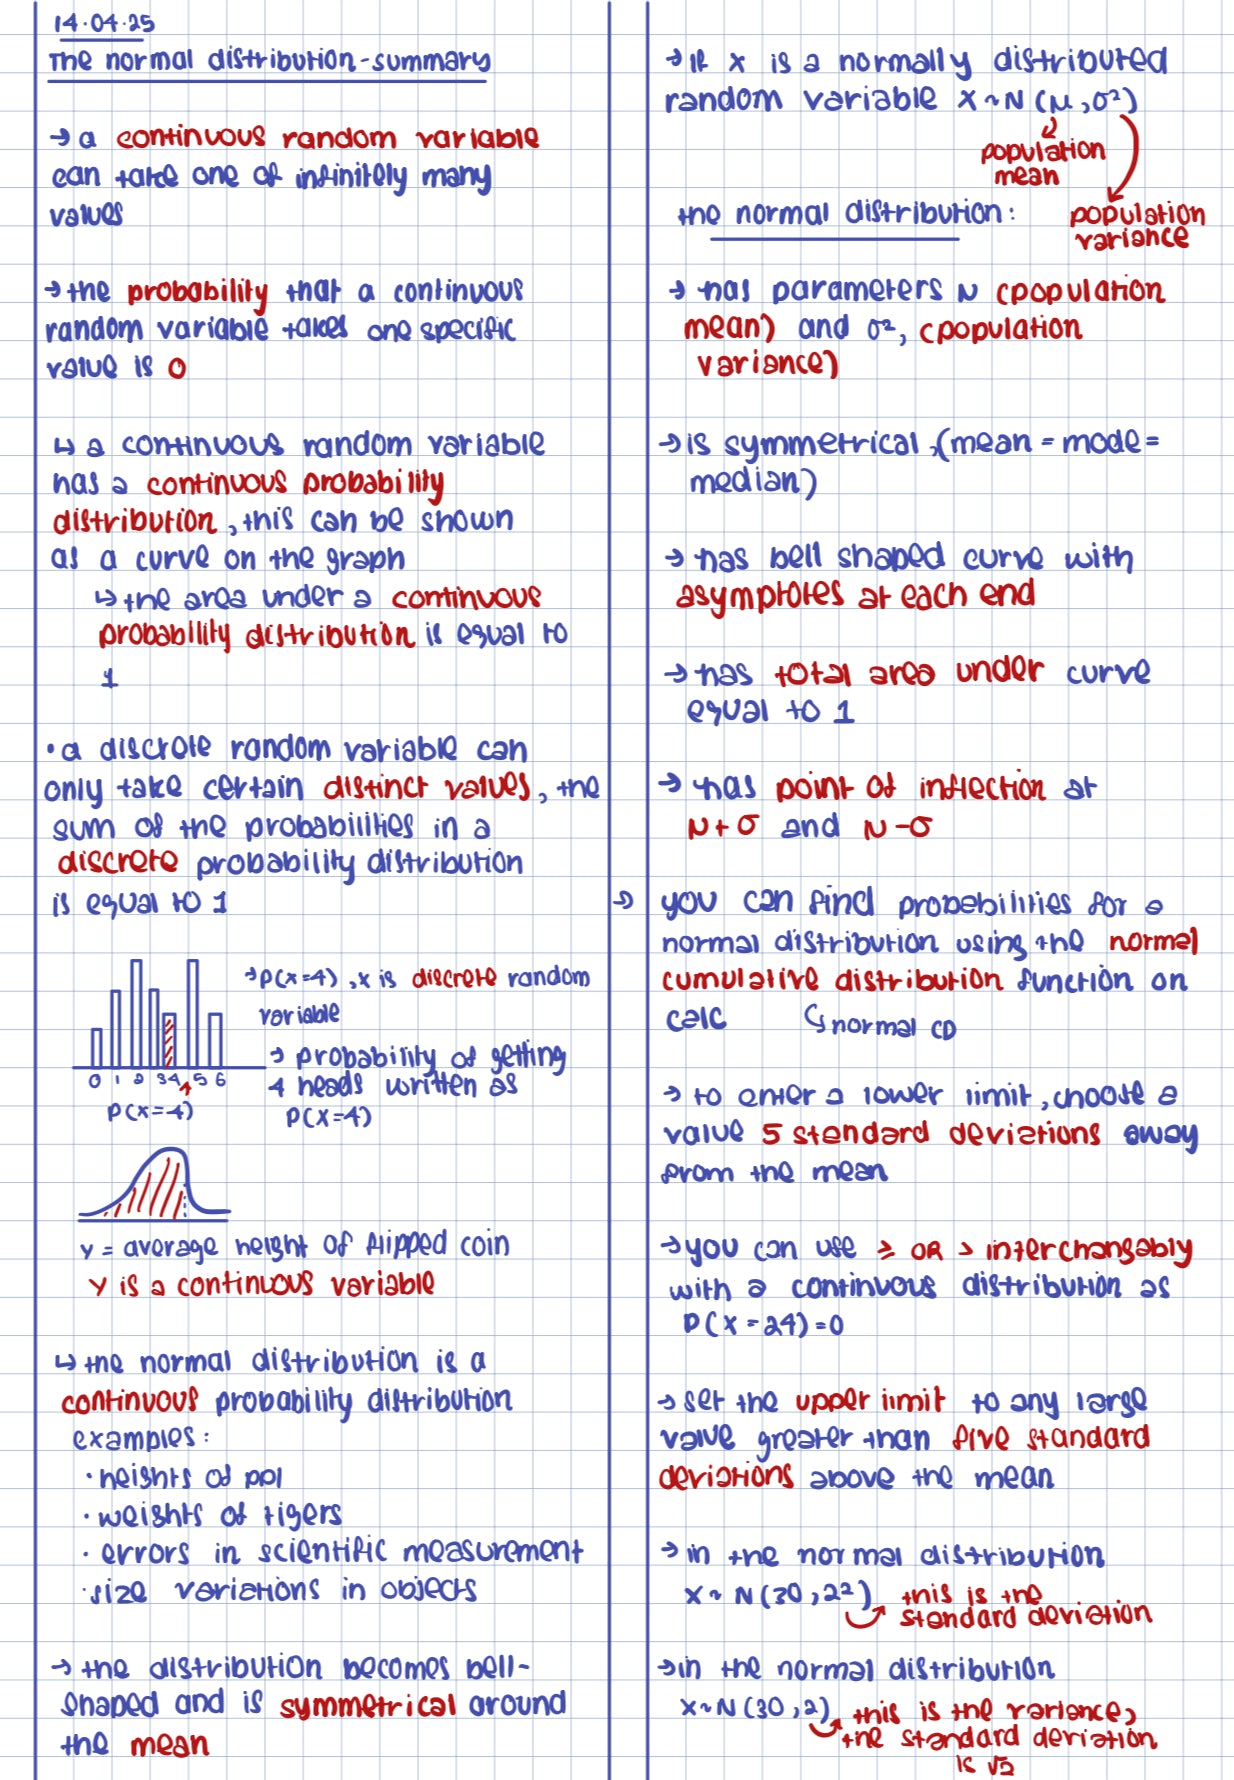 14.04.25
The normal distribution - summary
→ a continuous random variable
can take one of infinitely many
values
→ the probability that a continuous
random variable takes one specific
value is 0
↳ a continuous random variable
has a continuous probability
distribution, this can be shown
as a curve on the graph
↳ the area under a continuous
probability distribution is equal to
1
• a discrete random variable can
only take certain distinct values, the
sum of the probabilities in a
discrete probability distribution
is equal to 1
→ P(X=4), X is discrete random
variable
→ probability of getting
4 heads written as
P(X=4)
0 1 2 3 4 5 6
P(X=4)
Y = average height of flipped coin
Y is a continuous variable
↳ the normal distribution is a
continuous probability distribution
examples:
• heights of ppl
• weights of tigers
• errors in scientific measurement
• size variations in objects
→ the distribution becomes bell-
shaped and is symmetrical around
the mean
→ If X is a normally distributed
random variable X ~ N (μ, σ²)
population
mean
population
variance
the normal distribution:
→ has parameters μ (population
mean) and σ², (population
variance)
→ is symmetrical (mean = mode =
median)
→ has bell shaped curve with
asymptotes at each end
→ has total area under curve
equal to 1
→ has point of inflection at
μ + σ and μ - σ
→ you can find probabilities for a
normal distribution using the normal
cumulative distribution function on
calc ↳ normal CD
→ to enter a lower limit, choose a
value 5 standard deviations away
from the mean
→ you can use ≥ OR > interchangably
with a continuous distribution as
P(X = 24) = 0
→ set the upper limit to any large
value greater than five standard
deviations above the mean
→ in the normal distribution
X ~ N (30, 2²) this is the
standard deviation
→ in the normal distribution
X ~ N (30, 2) this is the variance,
the standard deviation
is √2